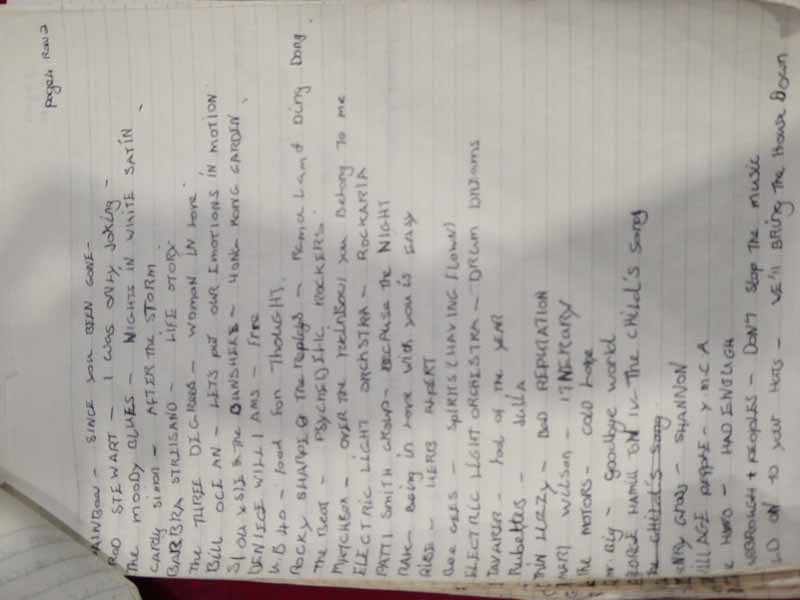 page4 Row 2
AINBOW - SINCE YOU BEEN GONE -
ROD STEWART - I WAS ONLY JOKING -
The MOODY BLUES - NIGHTS IN WHITE SATIN
CARLY SIMON - AFTER THE STORM
BARBRA STREISAND - LIFE STORY
The THREE DEGREES - WOMAN IN LOVE
Bill OCEAN - LETS PUT OUR EMOTIONS IN MOTION
SIOUXSIE & the BANSHEES - HONG KONG GARDEN
DENIECE WILLIAMS - Free
U.B 40 - Food FOR THOUGHT.
ROCKY SHARPE & The Replays - RAMA LAMA DING DONG.
The Beat - PSYCHEDELIC ROCKERS.
MATCHBOX - OVER THE RAINBOW/ YOU Belong To me
ELECTRIC LIGHT ORCHSTRA - ROCKARIA
PATTI SMITH GROUP - BECAUSE THE NIGHT
RAH - Being in Love with you is EASY
RISE - HERB ALPERT
Bee GEES - SPIRITS (HAVING FLOWN)
ELECTRIC LIGHT ORCHESTRA - DRUM DREAMS
TAVARES - Fool of the YEAR
Rubettes - Julia
THIN LIZZY - BAD REPUTATION
MARI Wilson - ITINERARY
the MOTORS - COLD LOVE
Mr. Big - Goodbye world
EORGE HAMILTON IV - The CHILD'S Song
the CHILD'S Song
ENRY GROSS - SHANNON
VILLAGE PEOPLE - Y.M.C.A
HAD ENOUGH
YARBROUGH & PEOPLES - DON'T Stop The music
LD ON TO your Hats - WE'LL BRING The House Down